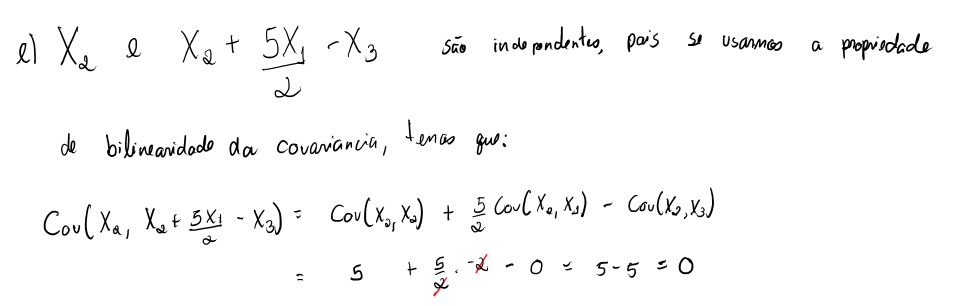 e) X₂ e X₂ + 5X₁/2 - X₃ são independentes, pois se usarmos a propriedade
de bilinearidade da covariancia, temos que:
Cov(X₂, X₂ + 5X₁/2 - X₃) = Cov(X₂, X₂) + 5/2 Cov(X₂, X₁) - Cov(X₂, X₃)
= 5 + 5/2 · -2 - 0 = 5 - 5 = 0